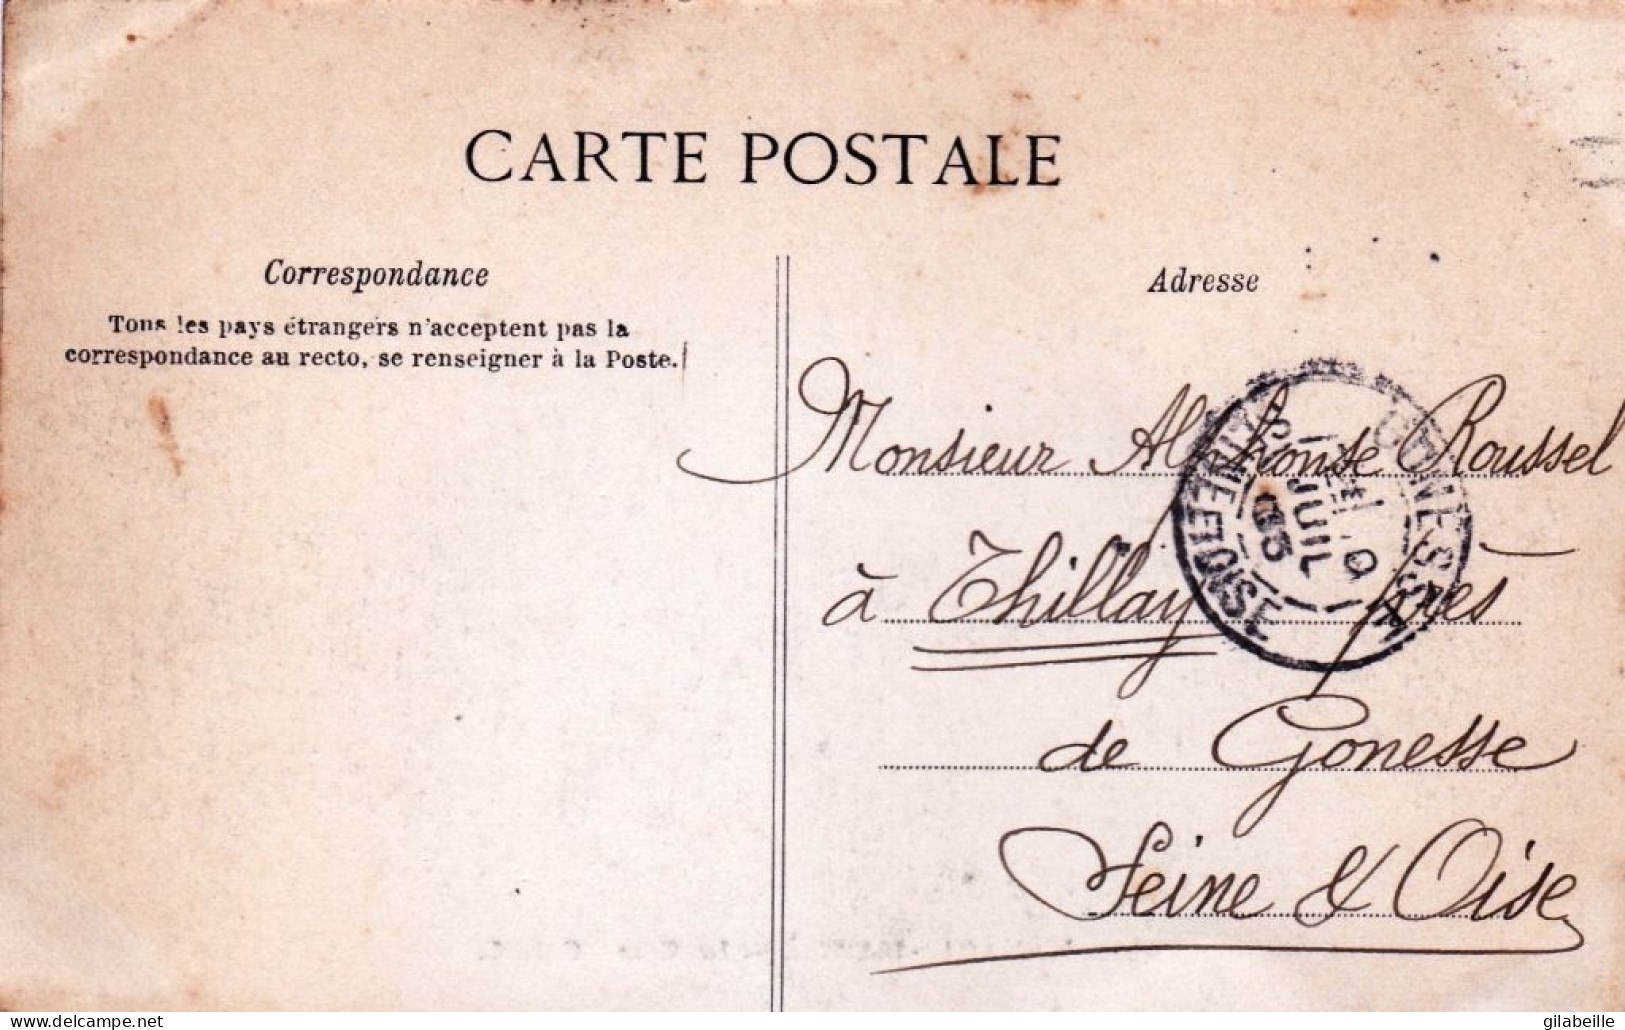 CARTE POSTALE
Correspondance
Tous les pays étrangers n'acceptent pas la
correspondance au recto, se renseigner à la Poste.
Adresse
Monsieur Alphonse Roussel
à Thillay près
de Gonesse
Seine & Oise
GONESSE
SEINE ET OISE
JUIL
delcampe.net
gilabeille